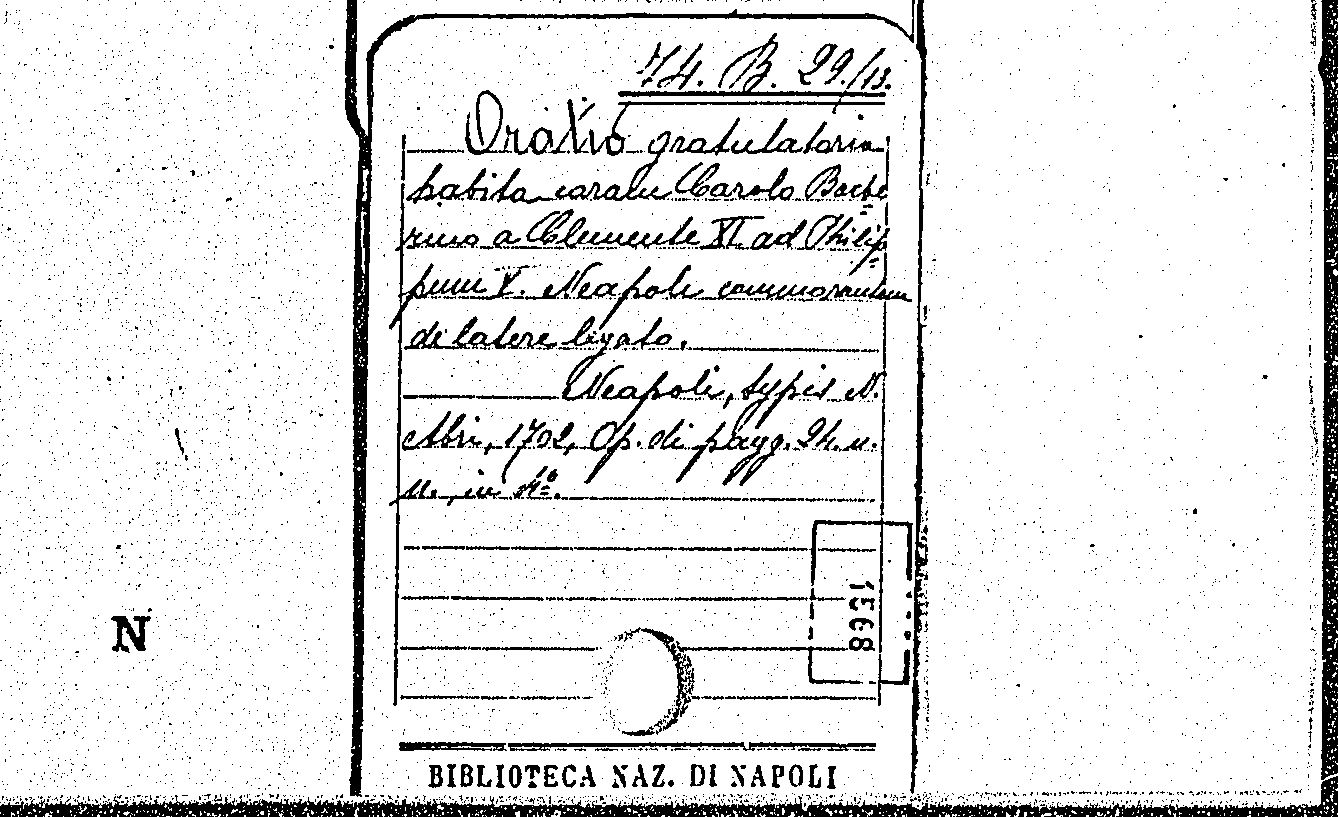 74. B. 29./13.
Oratio gratulatoria
habita coram Carolo Barbe
rino a Clemente XI ad Philip
pum V. Neapoli commorantem
di latere legato.
Neapoli, typis N.
Abri, 1702, Op. di pagg. 24. n.
n., in 4º.
1568
N
BIBLIOTECA NAZ. DI NAPOLI